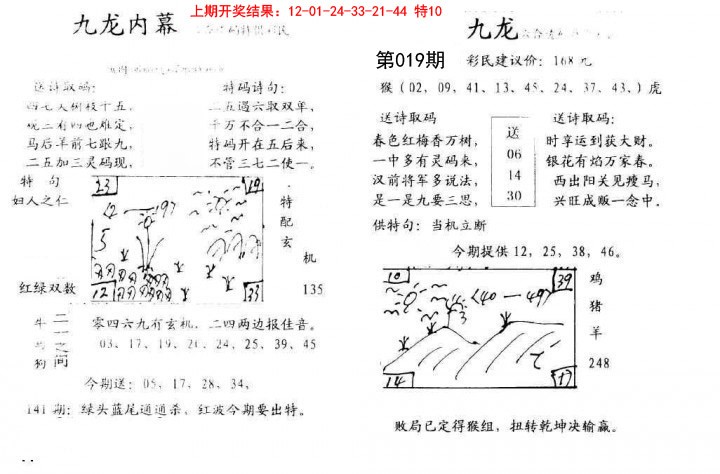 上期开奖结果：12-01-24-33-21-44 特10
九龙内幕
送诗取码：
特码诗句：
二五遇六取双单，
千万不合一二合，
马后羊前七跟九，
特码开在五后来，
二五加三灵码现，
不管三七二使一。
特 句
妇人之仁
23
19
12 — 19
5
12
33
特
配
玄
机
135
红绿双数
牛 二
二
之
狗 间
零四六九有玄机，二四两边报佳音。
03、17、19、20、24、25、39、45
今期送：05、17、28、34、
141期：绿头蓝尾通通杀，红波今期要出特。
九龙
第019期
彩民建议价：168元
猴（02、09、41、13、45、24、37、43、）虎
送诗取码
春色红梅香万树，
一中多有灵码来，
汉前将军多说法，
是一是九要三思，
送
06
14
30
送诗取码：
时享运到获大财。
银花有焰万家春。
西出阳关见瘦马，
兴旺成贩一念中．
供特句：当机立断
今期提供 12，25，38，46。
10
39
<40 — 49>
14
17
鸡
猪
羊
248
败局已定得猴组，扭转乾坤决输赢。